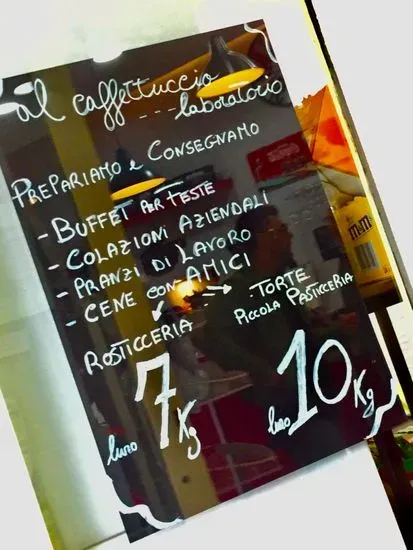 il caffettuccio
--- laboratorio
PREPARIAMO e CONSEGNAMO
- BUFFET PER FESTE
- COLAZIONI AZIENDALI
- PRANZI DI LAVORO
- CENE CON AMICI
ROSTICCERIA
euro 7 Kg
TORTE
PICCOLA PASTICCERIA
euro 10 Kg
m&m's